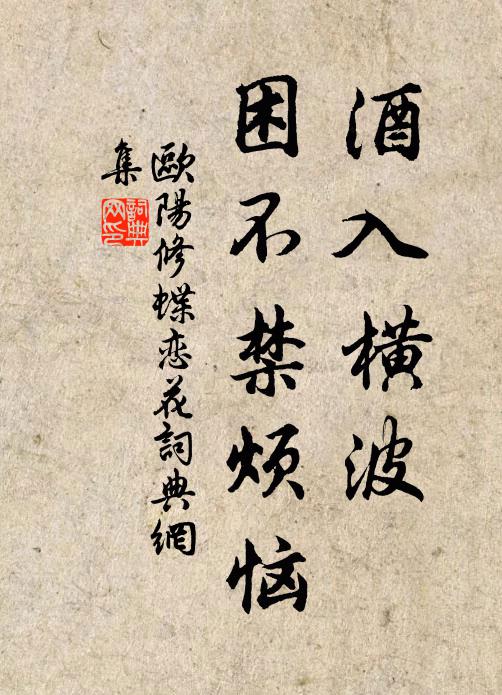 酒入横波
困不禁烦恼
歐陽修蝶恋花詞典網
集
詞典网印